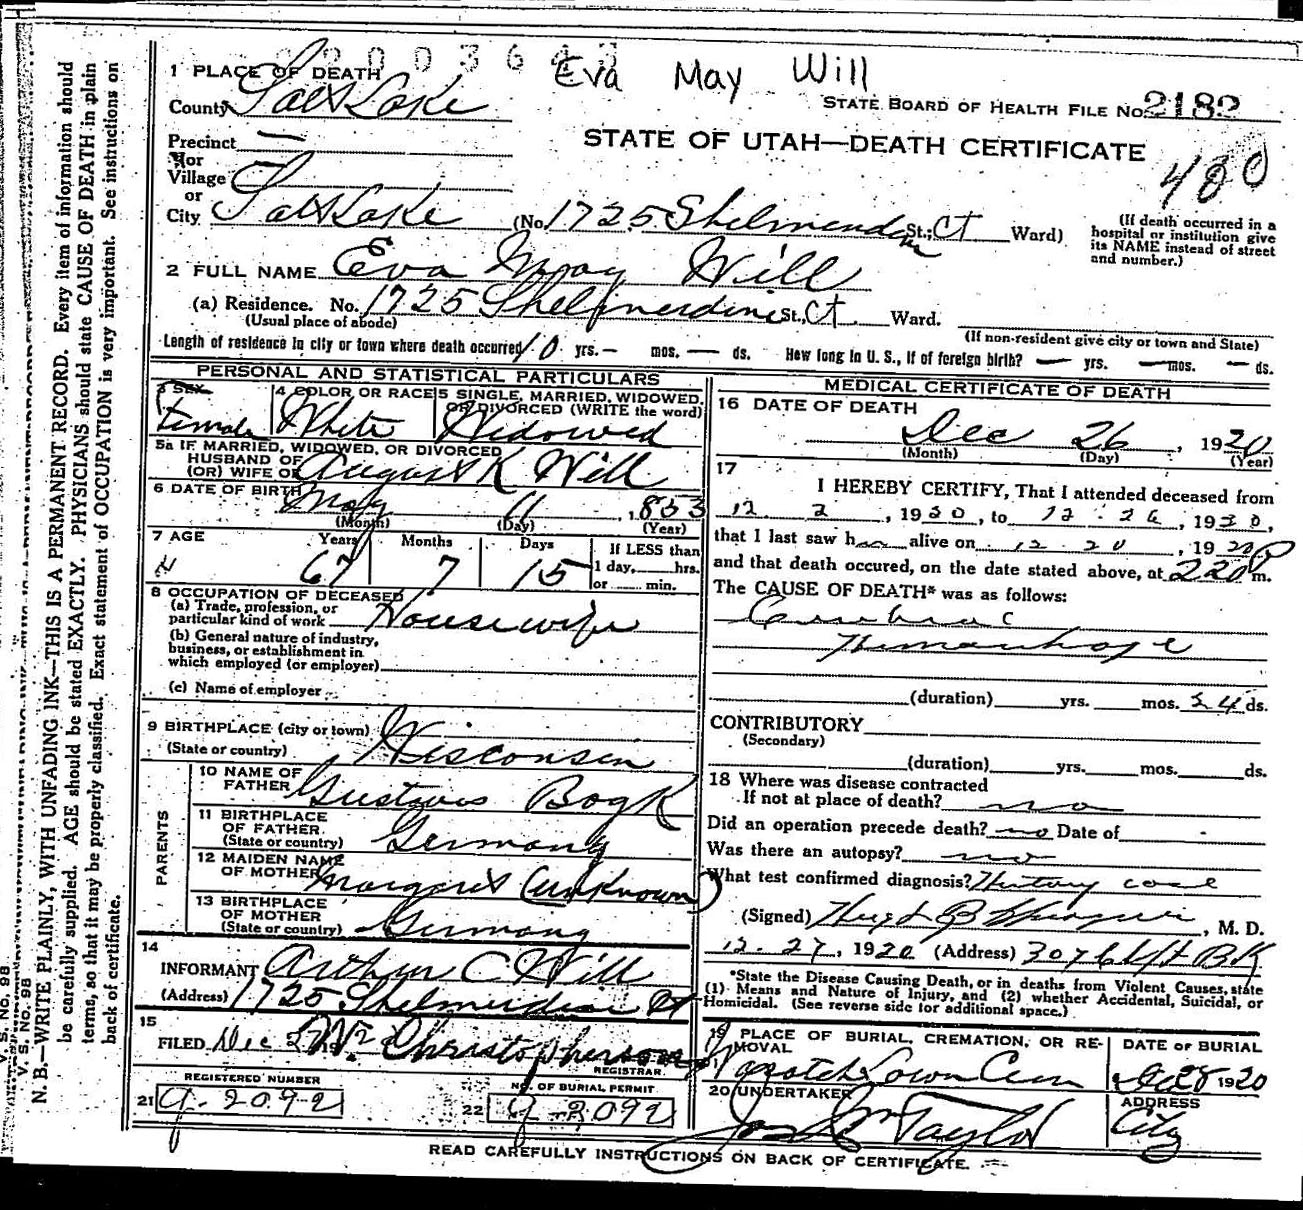 2003643
Eva May Will
1 PLACE OF DEATH
County Salt Lake
STATE BOARD OF HEALTH FILE No. 2182
STATE OF UTAH—DEATH CERTIFICATE
480
Precinct —
or
Village —
or
City Salt Lake (No. 1725 Shelmerdine St.; Ct Ward)
(If death occurred in a hospital or institution give its NAME instead of street and number.)
2 FULL NAME Eva May Will
(a) Residence. No. 1725 Shelmerdine St., Ct. Ward.
(Usual place of abode) (If non-resident give city or town and State)
Length of residence in city or town where death occurred 10 yrs. — mos. — ds. How long in U. S., if of foreign birth? — yrs. — mos. — ds.
PERSONAL AND STATISTICAL PARTICULARS
3 SEX Female
4 COLOR OR RACE White
5 SINGLE, MARRIED, WIDOWED, OR DIVORCED (WRITE the word) Widowed
5a IF MARRIED, WIDOWED, OR DIVORCED
HUSBAND OF
(OR) WIFE OF August K Will
6 DATE OF BIRTH May 11, 1853
(Month) (Day) (Year)
7 AGE Years Months Days
67 7 15
If LESS than
1 day, hrs.
or min.
8 OCCUPATION OF DECEASED
(a) Trade, profession, or
particular kind of work Housewife
(b) General nature of industry,
business, or establishment in
which employed (or employer)
(c) Name of employer
9 BIRTHPLACE (city or town)
(State or country) Wisconsin
PARENTS
10 NAME OF
FATHER Gustavus Bogk
11 BIRTHPLACE
OF FATHER
(State or country) Germany
12 MAIDEN NAME
OF MOTHER Margaret (Unknown)
13 BIRTHPLACE
OF MOTHER
(State or country) Germany
14
INFORMANT Arthur C Will
(Address) 1725 Shelmerdine Ct
15
FILED Dec 27 Christopherson
REGISTRAR
REGISTERED NUMBER
21 9-2092
NO. OF BURIAL PERMIT
22 9-2092
MEDICAL CERTIFICATE OF DEATH
16 DATE OF DEATH
Dec 26, 1920
(Month) (Day) (Year)
17
I HEREBY CERTIFY, That I attended deceased from
12 2, 1920, to 12.26, 1920,
that I last saw her alive on 12.20, 1920
and that death occured, on the date stated above, at 220 P m.
The CAUSE OF DEATH* was as follows:
Cerebral
Hemorrhage
(duration) yrs. mos. 24 ds.
CONTRIBUTORY
(Secondary)
(duration) yrs. mos. ds.
18 Where was disease contracted
If not at place of death? no
Did an operation precede death? no Date of
Was there an autopsy? no
What test confirmed diagnosis? History case
(Signed) Hugh B , M. D.
12-27, 1920 (Address)
*State the Disease Causing Death, or in deaths from Violent Causes, state
(1) Means and Nature of Injury, and (2) whether Accidental, Suicidal, or
Homicidal. (See reverse side for additional space.)
19 PLACE OF BURIAL, CREMATION, OR RE-
MOVAL
Wasatch Lawn Cem
DATE OF BURIAL
Dec 28 1920
20 UNDERTAKER
Taylor
ADDRESS
City
READ CAREFULLY INSTRUCTIONS ON BACK OF CERTIFICATE.
V. S. No. 98
N. B.—WRITE PLAINLY, WITH UNFADING INK—THIS IS A PERMANENT RECORD. Every item of information should
be carefully supplied. AGE should be stated EXACTLY. PHYSICIANS should state CAUSE OF DEATH in plain
terms, so that it may be properly classified. Exact statement of OCCUPATION is very important. See instructions on
back of certificate.